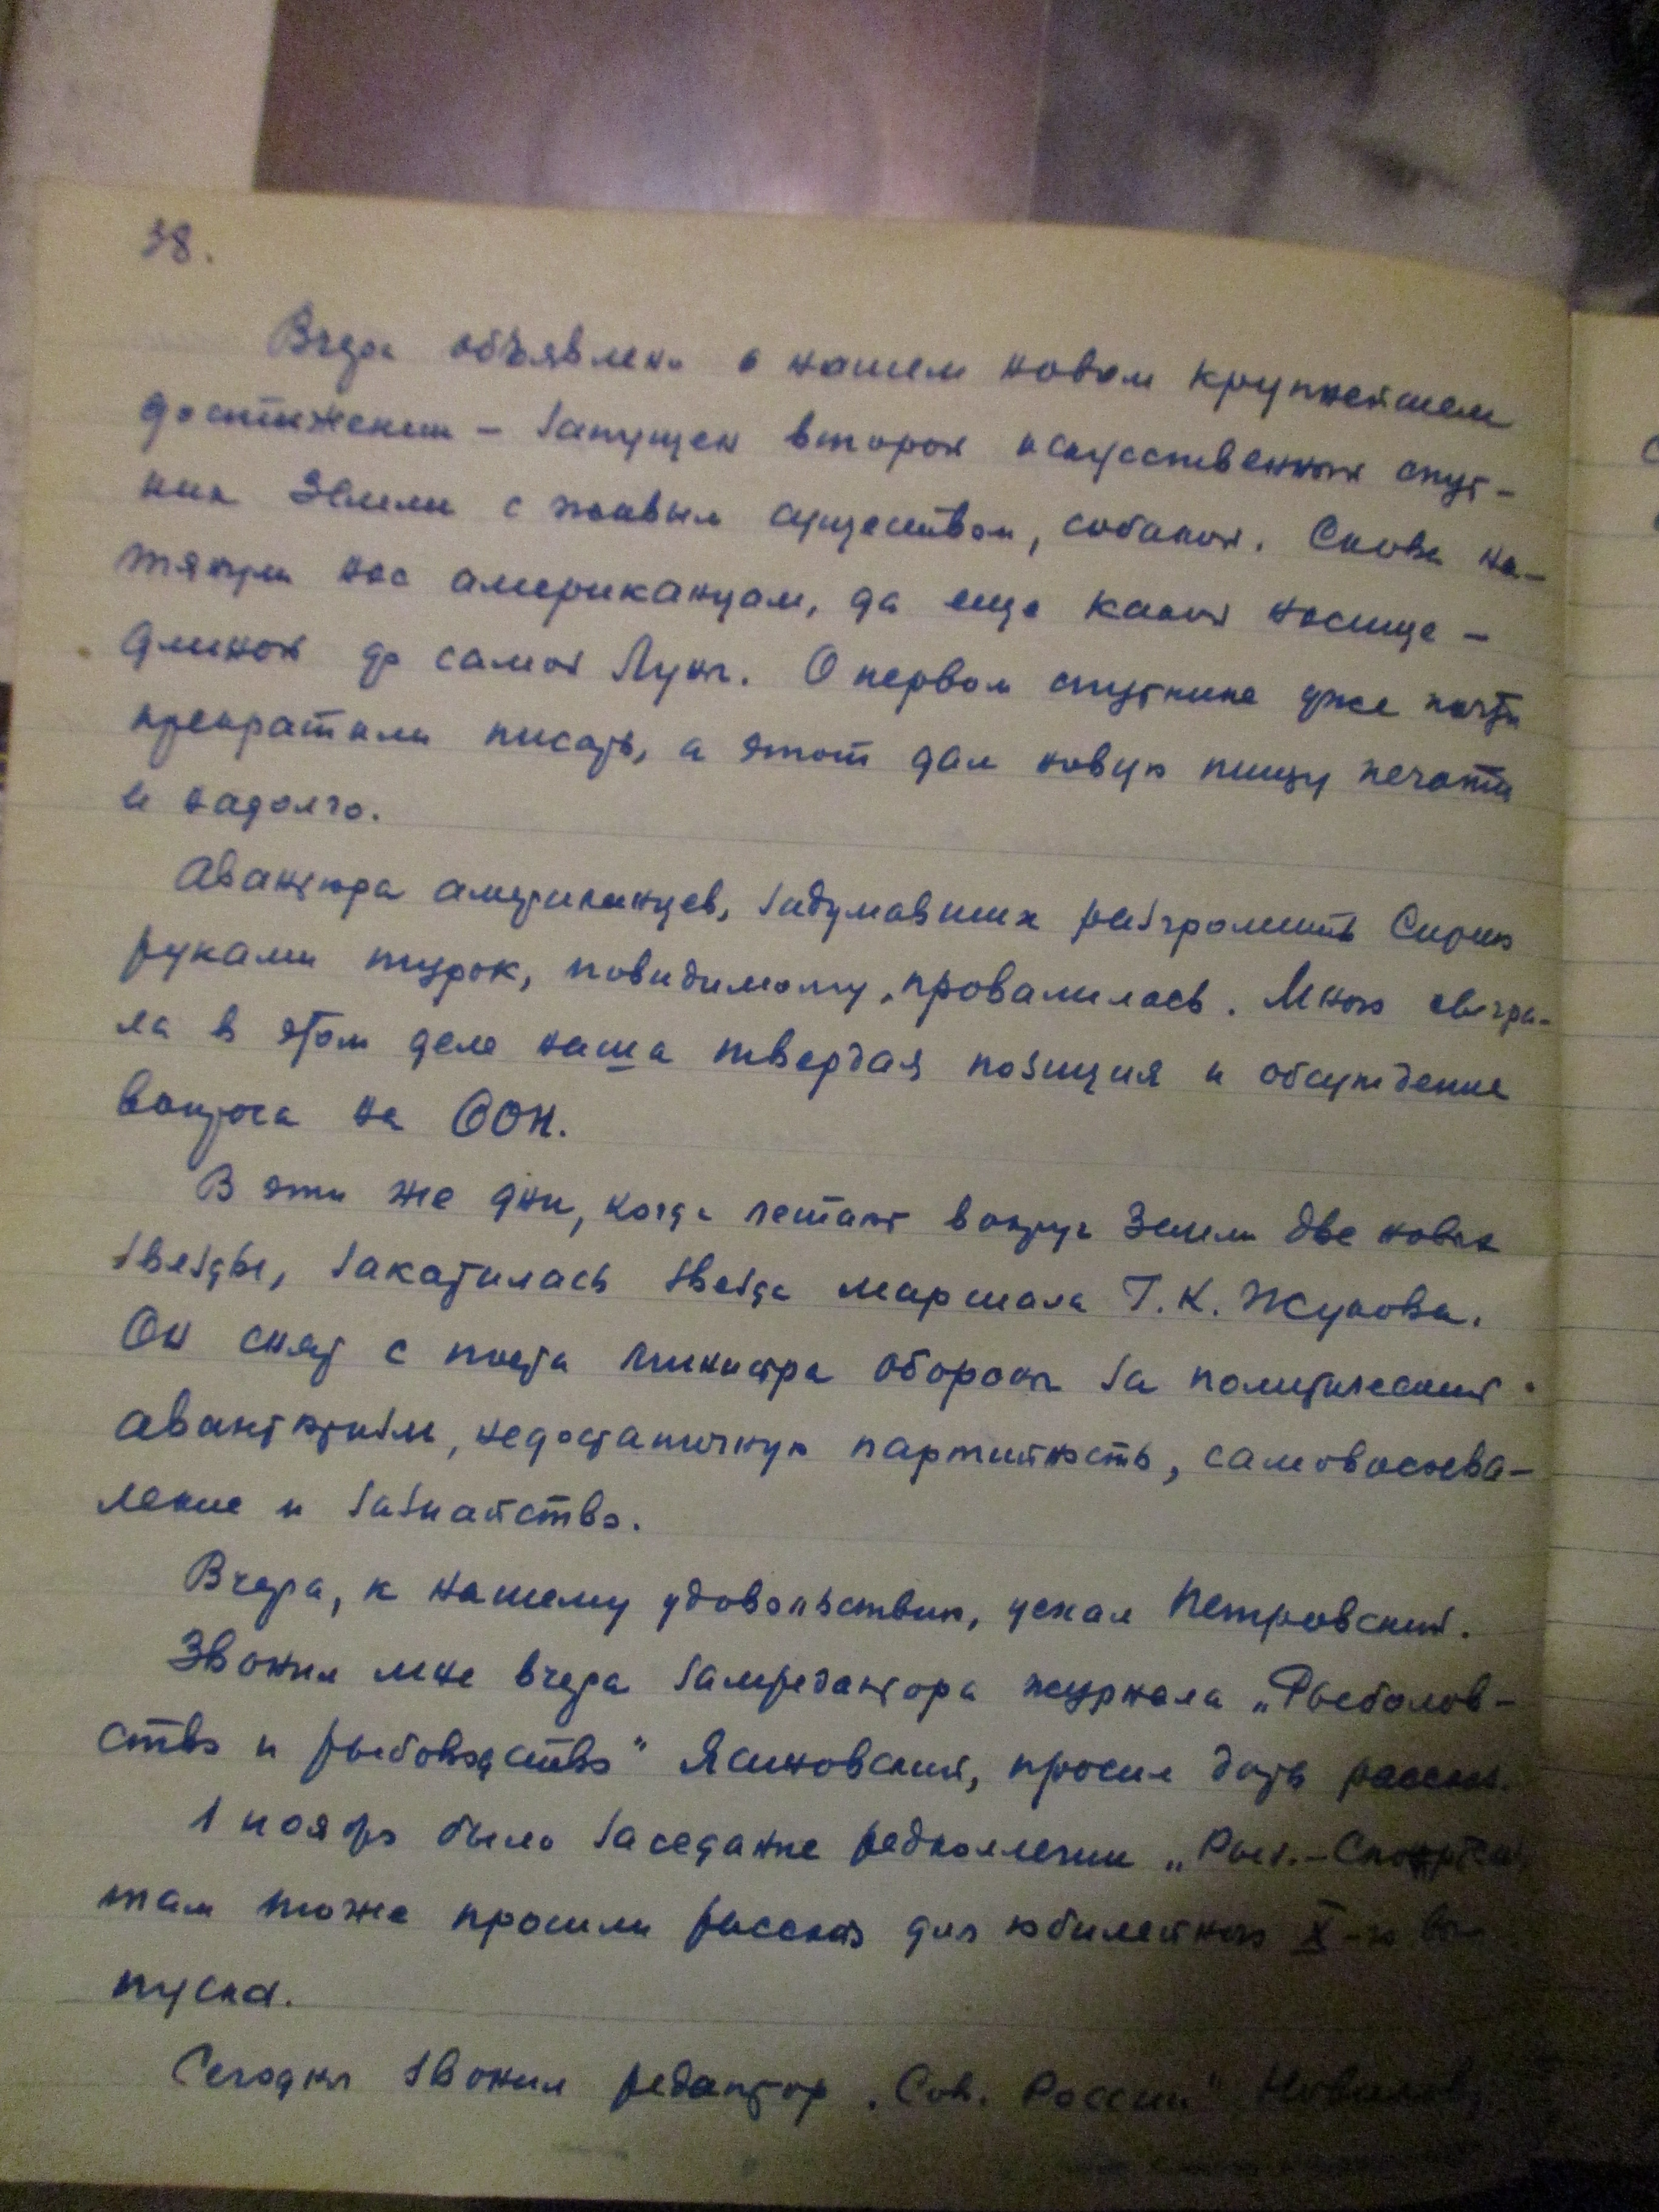 38.
Вчера объявлено о нашем новом крупнейшем
достижении – запущен второй искусственный спут-
ник Земли с живым существом, собакой. Снова на-
тянули нос американцам, да еще какой носище –
длиной до самой Луны. О первом спутнике уже почти
прекратили писать, а этот дал новую пищу печати
и надолго.
Авантюра американцев, задумавших разгромить Сирию
руками турок, повидимому, провалилась. Много сыгра-
ла в этом деле наша твердая позиция и обсуждение
вопроса на ООН.
В эти же дни, когда летают вокруг Земли две новых
звезды, закатилась звезда маршала Г.К. Жукова.
Он снят с поста министра обороны за политический
авантюризм, недостаточную партийность, самовосхва-
ление и зазнайство.
Вчера, к нашему удовольствию, уехал Петровский.
Звонил мне вчера замредактора журнала „Рыболов-
ство и рыбоводство" Ясиновский, просил дать рассказ.
1 ноября было заседание редколлегии „Рыб.-Спортсм.
там тоже просили рассказ для юбилейного X-го вы-
пуска.
Сегодня звонил редактор „Сов. России"